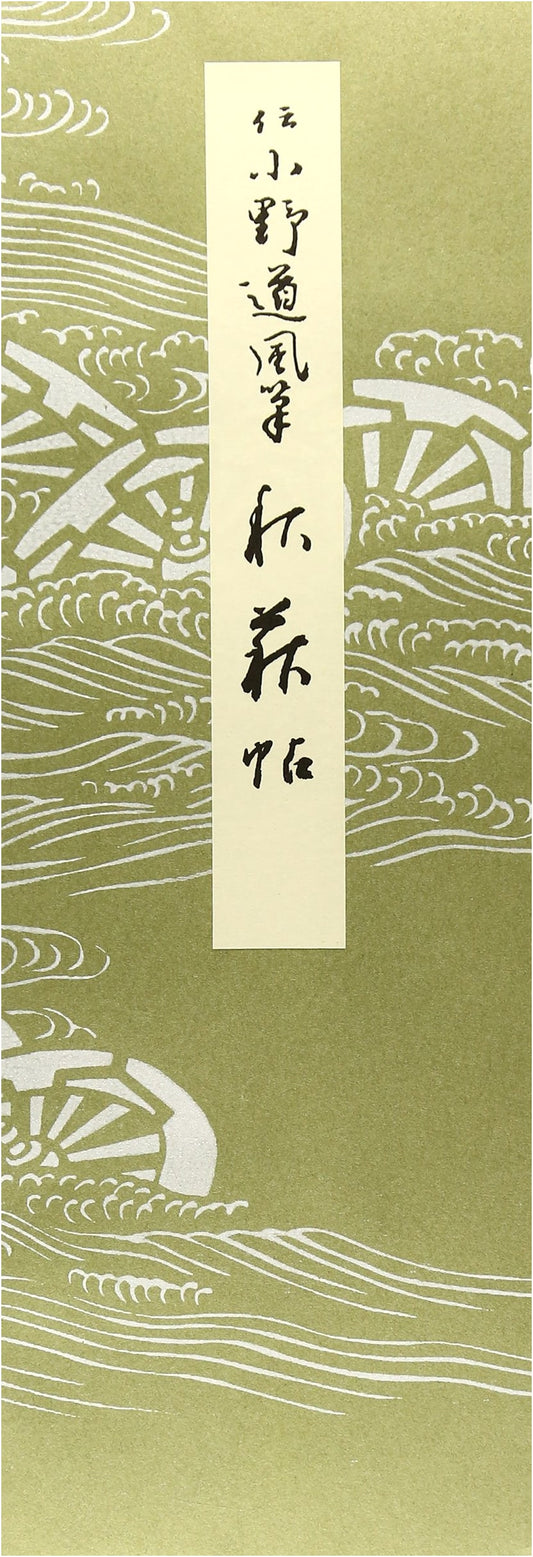 伝小野道風筆 秋萩帖